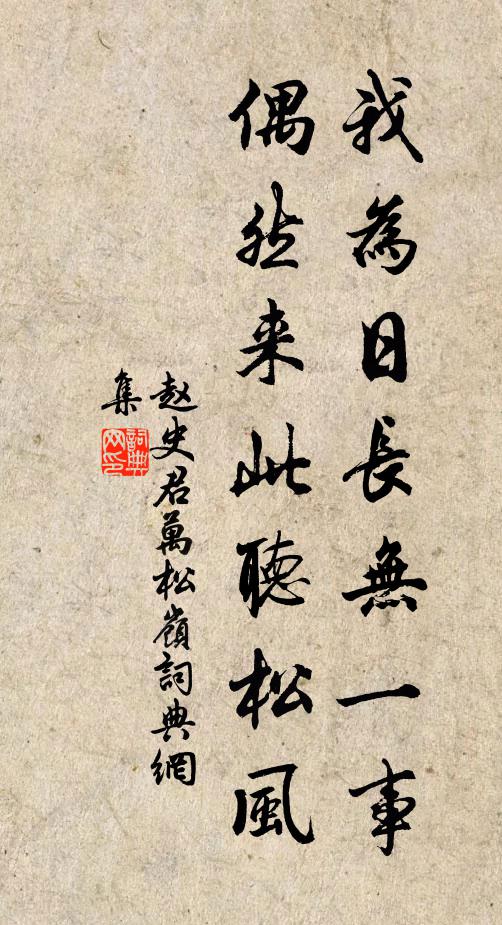 我為日長無一事
偶然来此聽松風
赵史君萬松嶺詞典網
集
詞典网印